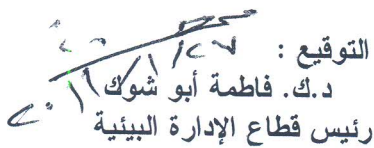 التوقيع :
د.ك. فاطمة أبو شوك
رئيس قطاع الإدارة البيئية